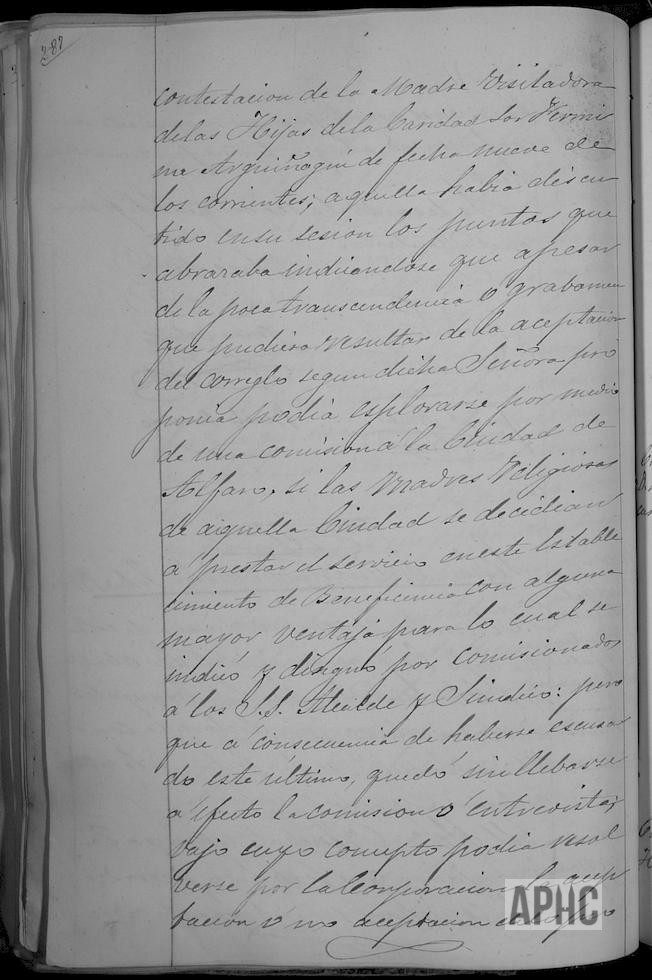 287
contestacion de la Madre Visitadora
de las Hijas de la Caridad Sor Fermi
na Arguiñagui de fecha nueve de
los corrientes; aquella habia discu
tido en su sesion los puntos que
abrazaba indicandose que apesar
de la poca transcendencia o grabamen
que pudiera resultar de la aceptacion
del correglo segun dicha Señora pro
ponia podia esplorarse por medio
de una comision á la Ciudad de
Alfaro, si las Madres Religiosas
de aquella Ciudad se decidian
á prestar el servicio en este Estable
cimiento de Beneficencia con alguna
mayor ventaja para lo cual se
indicó y designó por comisionados
á los S.S. Alcalde y Sindico: pero
que á consecuencia de haberse escusa
do este último, quedó sin llebarse
á efecto la comision ó entrevista;
vajo cuyo concepto podia resol
verse por la Corporacion la acep
tacion o no aceptacion
APHC